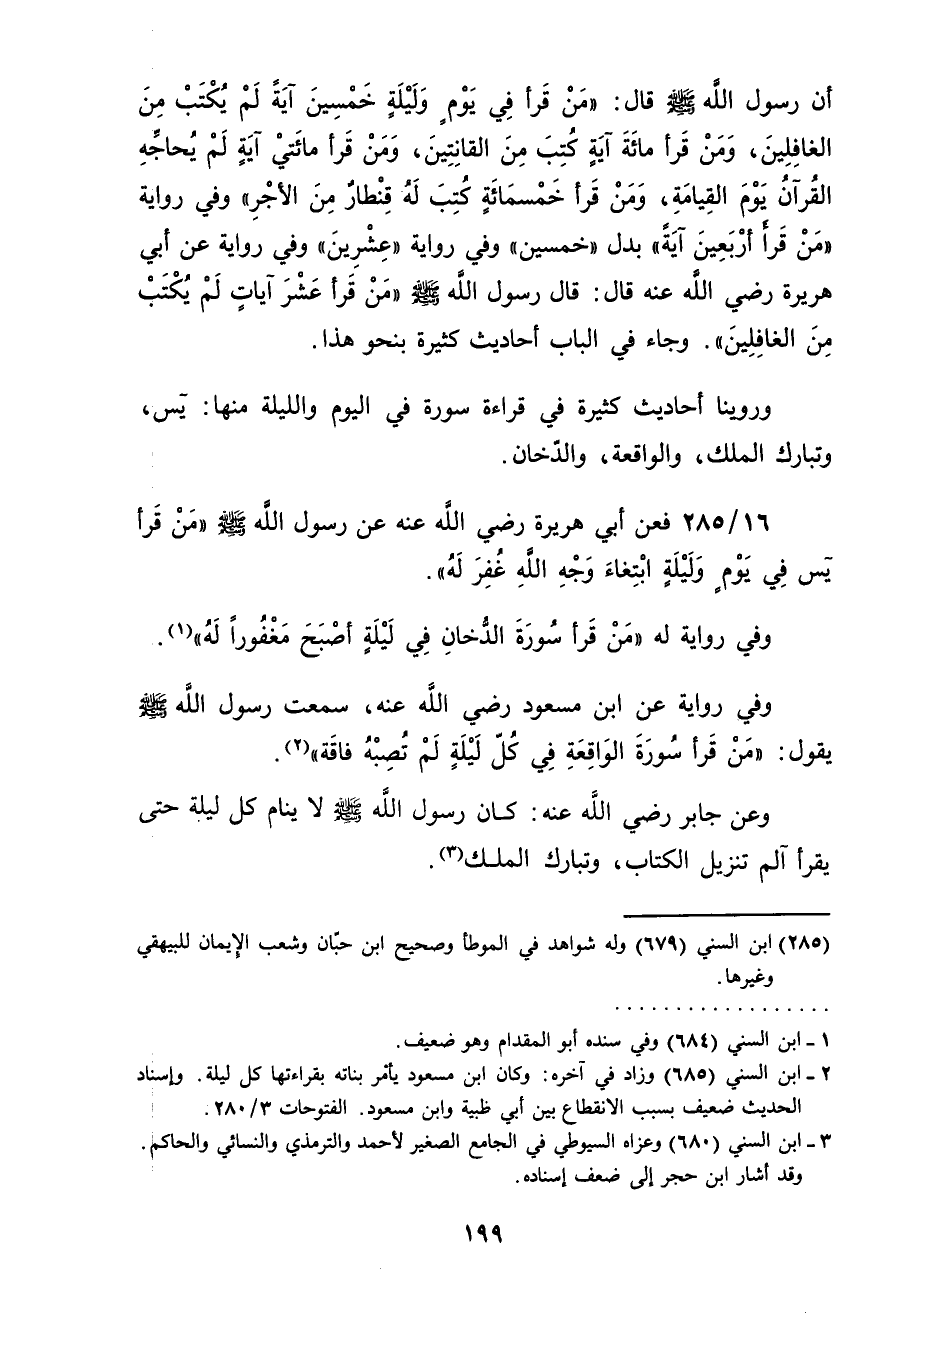 أن رسول اللَّه ﷺ قال: «مَنْ قَرأ فِي يَوْمٍ وَلَيْلَةٍ خَمْسِينَ آيَةً لَمْ يُكْتَبْ مِنَ
الغافِلِينَ، وَمَنْ قَرأ مائَةَ آيَةٍ كُتِبَ مِنَ القانِتِينَ، وَمَنْ قَرأ مائَتيْ آيَةٍ لَمْ يُحاجِّهِ
القُرآنُ يَوْمَ القِيامَةِ، وَمَنْ قَرأ خَمْسمَائَةٍ كُتِبَ لَهُ قِنْطارٌ مِنَ الأجْرِ» وفي رواية
«مَنْ قَرأَ أرْبَعِينَ آيَةً» بدل «خمسين» وفي رواية «عِشْرِينَ» وفي رواية عن أبي
هريرة رضي اللَّه عنه قال: قال رسول اللَّه ﷺ «مَنْ قَرأ عَشْرَ آياتٍ لَمْ يُكْتَبْ
مِنَ الغافِلِينَ». وجاء في الباب أحاديث كثيرة بنحو هذا.
وروينا أحاديث كثيرة في قراءة سورة في اليوم والليلة منها: يٓس،
وتبارك الملك، والواقعة، والدّخان.
٢٨٥/١٦ فعن أبي هريرة رضي اللَّه عنه عن رسول اللَّه ﷺ «مَنْ قَرأ
يٓس فِي يَوْمٍ وَلَيْلَةٍ ابْتِغاءَ وَجْهِ اللَّهِ غُفِرَ لَهُ».
وفي رواية له «مَنْ قَرأ سُورَةَ الدُّخانِ فِي لَيْلَةٍ أصْبَحَ مَغْفُوراً لَهُ»(١).
وفي رواية عن ابن مسعود رضي اللَّه عنه، سمعت رسول اللَّه ﷺ
يقول: «مَنْ قَرأ سُورَةَ الوَاقِعَةِ فِي كُلّ لَيْلَةٍ لَمْ تُصِبْهُ فاقَة»(٢).
وعن جابر رضي اللَّه عنه: كـان رسول اللَّه ﷺ لا ينام كل ليلة حتى
يقرأ آلم تنزيل الكتاب، وتبارك الملـك(٣).
(٢٨٥) ابن السني (٦٧٩) وله شواهد في الموطأ وصحيح ابن حبّان وشعب الإيمان للبيهقي
وغيرها.
. . . . . . . . . . . . . . . . . .
١ ـ ابن السني (٦٨٤) وفي سنده أبو المقدام وهو ضعيف.
٢ ـ ابن السني (٦٨٥) وزاد في آخره: وكان ابن مسعود يأمر بناته بقراءتها كل ليلة. وإسناد
الحديث ضعيف بسبب الانقطاع بين أبي ظبية وابن مسعود. الفتوحات ٢٨٠/٣.
٣ ـ ابن السني (٦٨٠) وعزاه السيوطي في الجامع الصغير لأحمد والترمذي والنسائي والحاكم.
وقد أشار ابن حجر إلى ضعف إسناده.
١٩٩